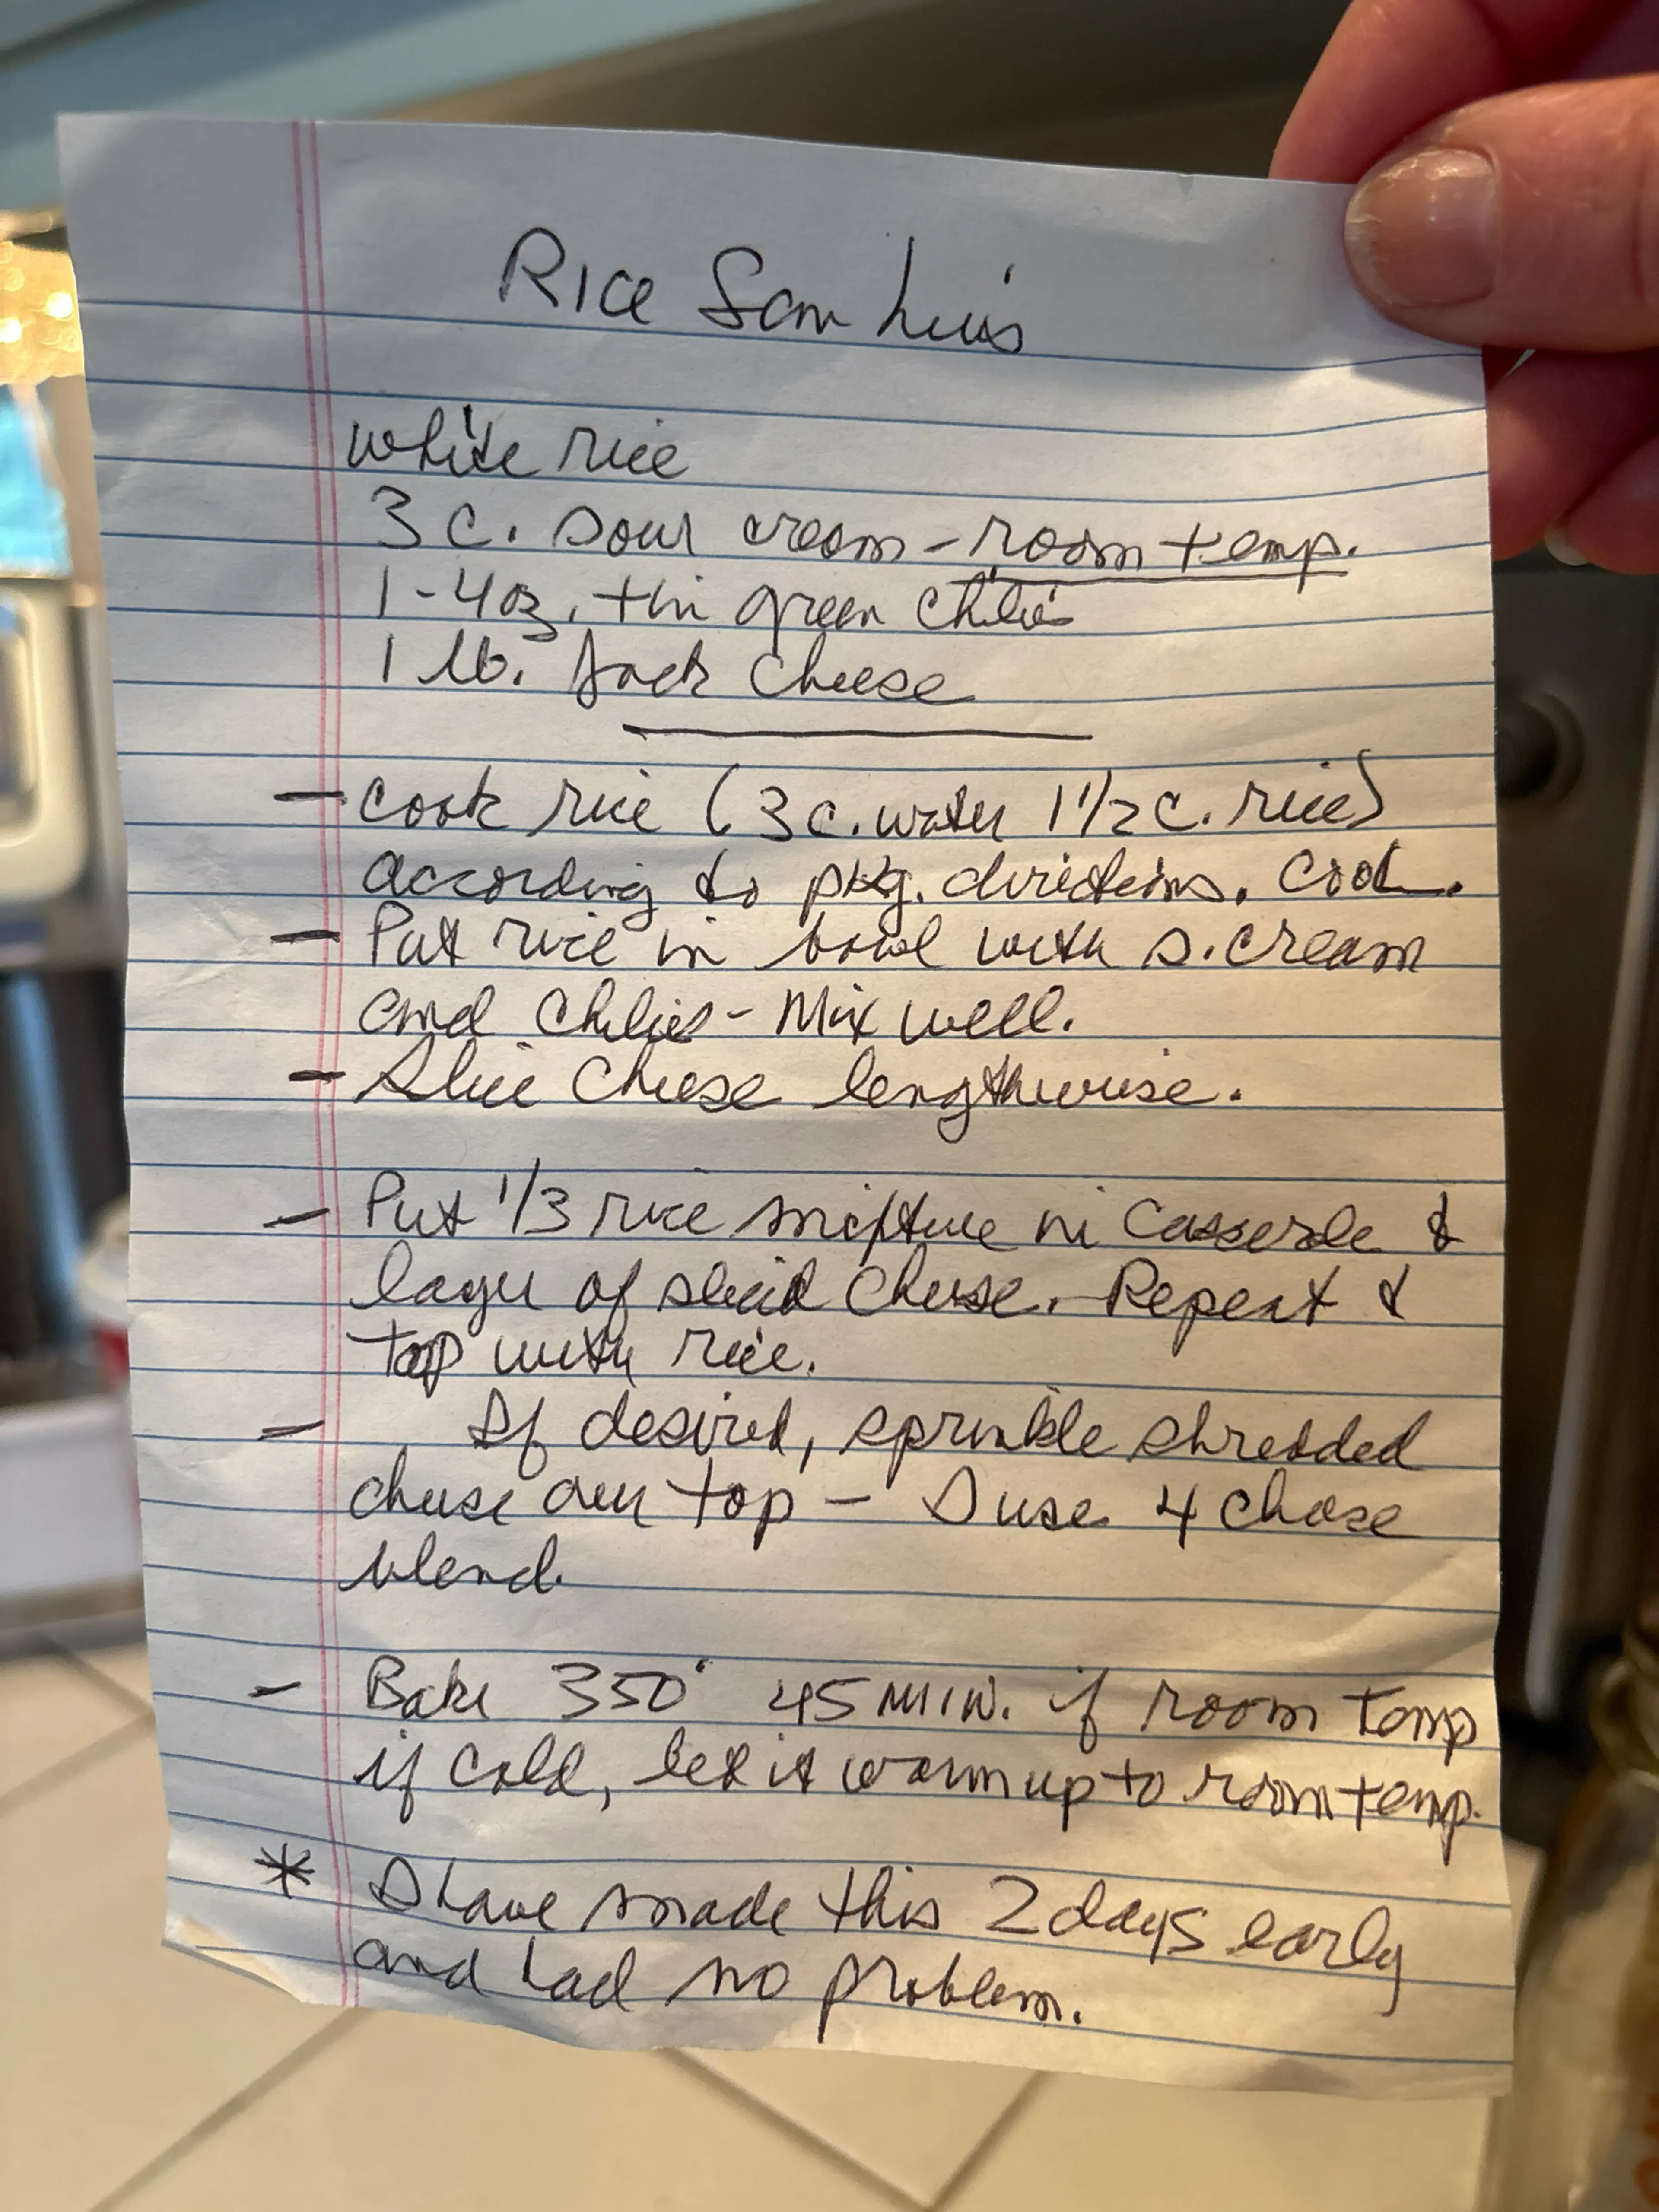 Rice San Luis
white rice
3 c. sour cream - room temp.
1 - 4 oz. tin green chilies
1 lb. Jack cheese
- cook rice (3 c. water 1 1/2 c. rice)
according to pkg. directions. Cool.
- Put rice in bowl with s. cream
and chilies - Mix well.
- Slice cheese lengthwise.
- Put 1/3 rice mixture in casserole &
layer of sliced cheese. Repeat &
top with rice.
- If desired, sprinkle shredded
cheese over top - I use 4 cheese
blend.
- Bake 350° 45 MIN. if room temp
if cold, let it warm up to room temp.
* I have made this 2 days early
and had no problem.